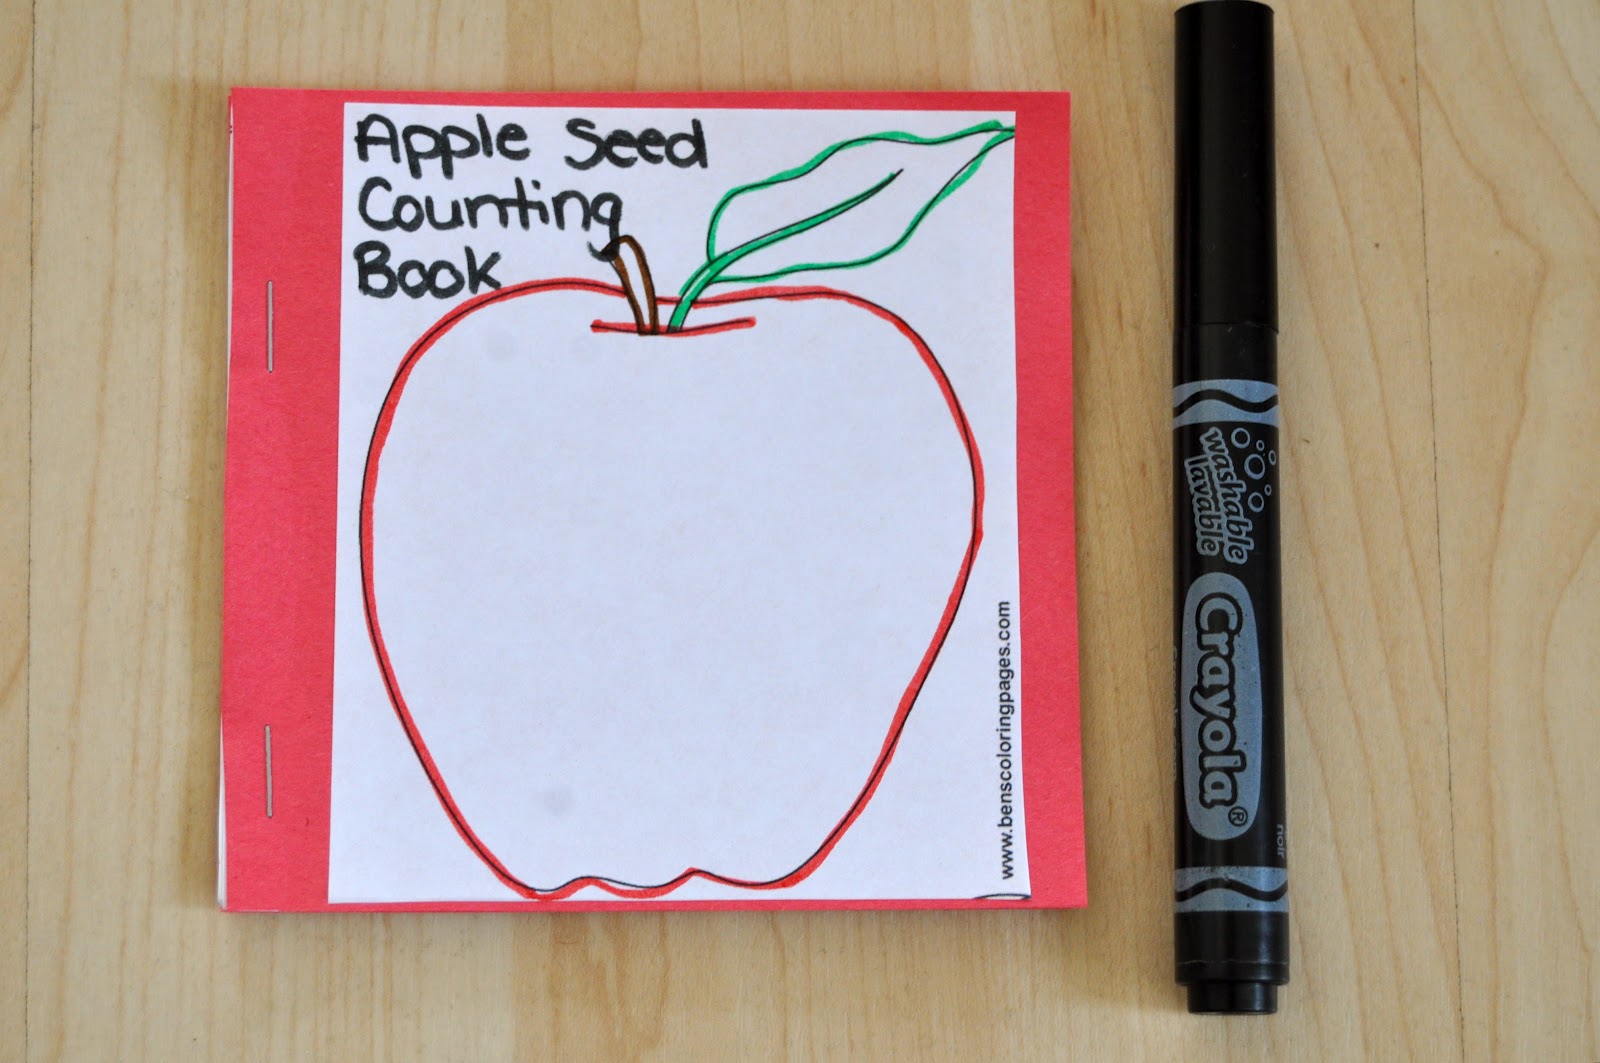 Apple Seed
Counting
Book
www.benscoloringpages.com
washable
lavable
Crayola®
noir